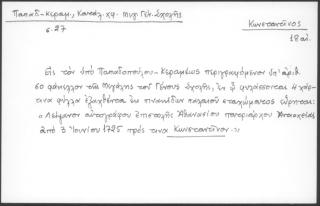 Παπαδ.-Κεραμ., Κατάλ. χφ. Μεγ. Γέν. Σχολῆς
Κωνσταντῖνος
σ. 27
18 αἰ.
Εἰς τὸν ὑπὸ Παπαδοπούλου-Κεραμέως περιγραφόμενον ὑπ' ἀριθ.
60 φάκελλον τῆς Μεγάλης τοῦ Γένους Σχολῆς, ἐν ᾧ φυλάσσονται 4 χάρ-
τινα φύλλα ἐξαχθέντα ἐκ πινακίδων παλαιοῦ σταχώματος εὕρηται:
"Λείψανον αὐτογράφου ἐπιστολῆς Ἀθανασίου πατριάρχου Ἀντιοχείας
ἀπὸ 3 Ἰουνίου 1725 πρός τινα Κωνσταντῖνον"